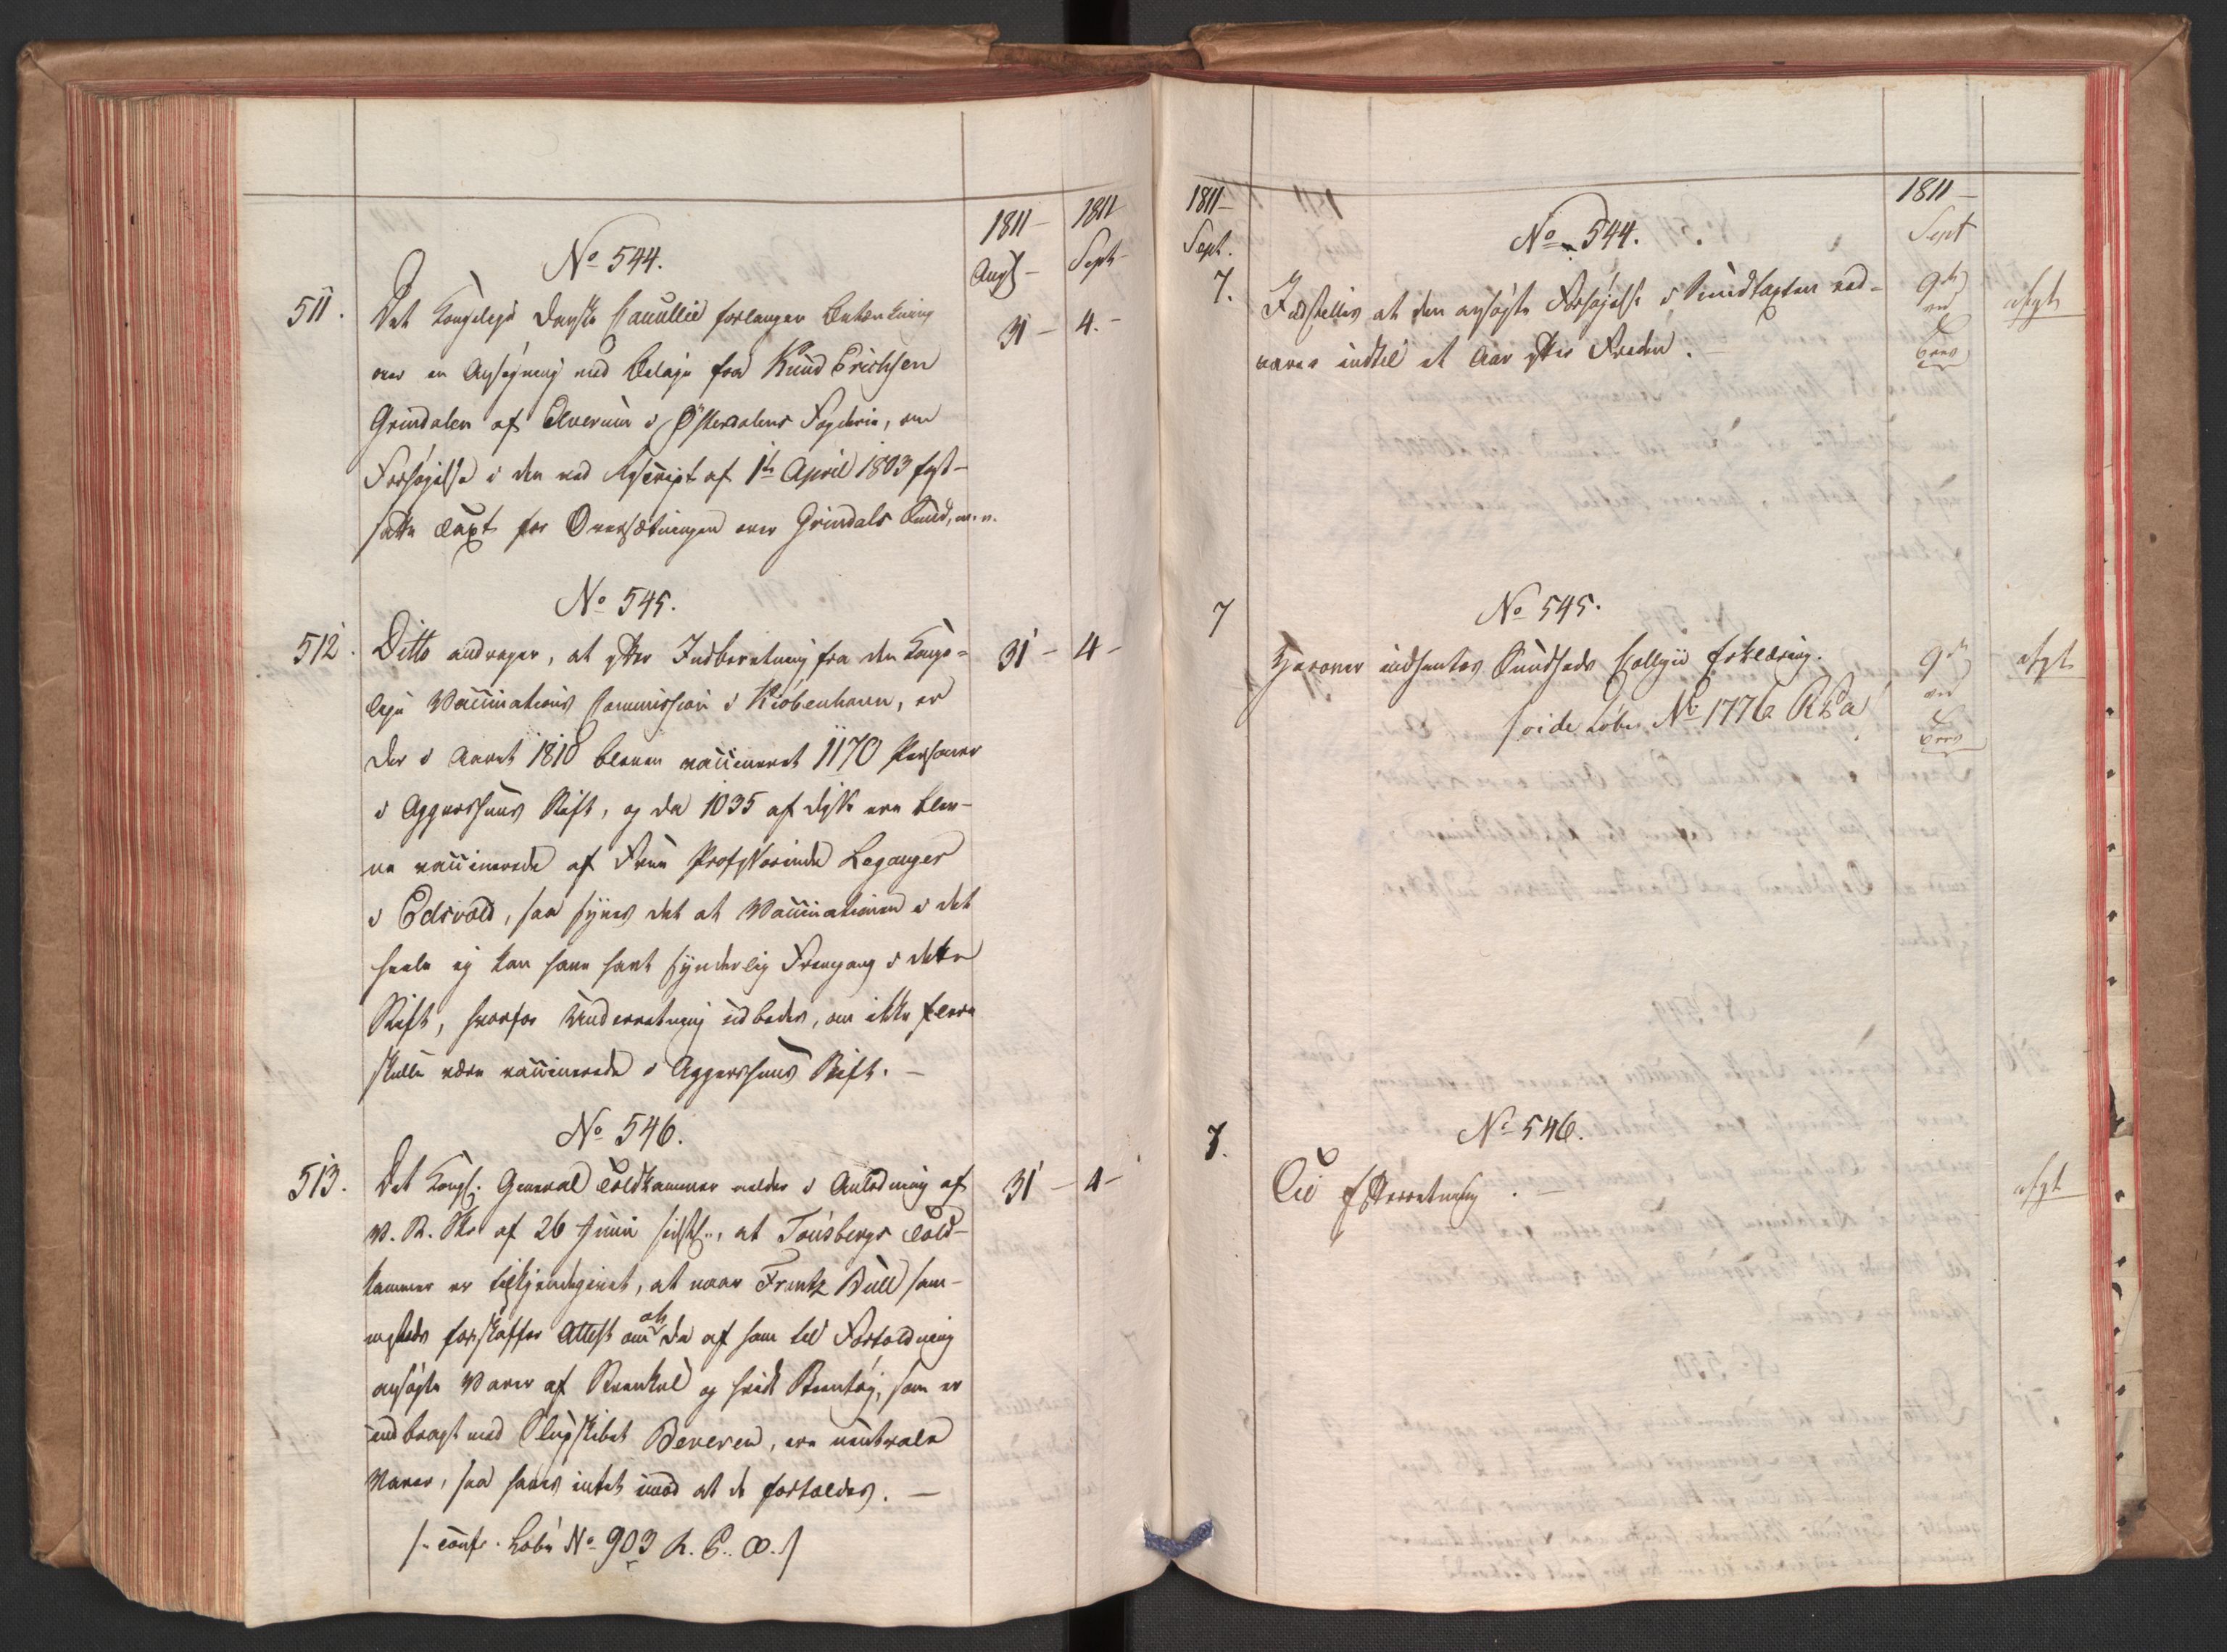 1811 - 1811
Augs - Septr
No 544.
511. Det kongelige danske Cancellie forlanger Betænkning 31 - 4. -
over en Ansøgning med Bilage fra Knud Erichsen
Grindalen af Elverum i Østerdalens Fogderie, om
Forhøjelse i den ved Rescript af 1te April 1803 fast-
satte Taxt for Oversætningen over Grindals Sund, m. v.
No 545.
512. Ditto andrager, at efter Indberetning fra den konge- 31 - 4 -
lige Vaccinations Commission i Kiøbenhavn, er
der i Aaret 1810 bleven vaccineret 1170 Personer
i Aggershuus Stift, og da 1035 af disse ere blev-
ne vaccinerede af Frue Professorinde Leganger
i Edsvold, saa synes det at Vaccinationen i det
heele ej kan have havt synderlig Fremgang i dette
Stift, hvorfor Underretning udbedes, om ikke flere
skulle være vaccinerede i Aggershuus Stift. -
No 546.
513. Det kongl. General Toldkammer melder i Anledning af 31 - 4 -
V. R. Skr af 26 Junii sidstl., at Tønsbergs Told-
kammer er tilkjendegivet, at naar Frantz Bull sam-
mesteds forskaffer Attest om at de af ham til Fortoldning
ansøgte Varer af Steenkul og hvidt Steentøj, som er
indbragt med Slupskibet Beveren, ere neutrale
Varer, saa haves intet imod at de fortoldes. -
/: confr. Løbe No 903 R. C. A. /
1811 - 1811 -
Sept. Sept
No 544.
7. Indstilles at den ansøgte Forhøjelse i Sundtaxten ved- 9de afgt
varer indtil et Aar efter Freden. -
No 545.
7 Herover indhentes Sundheds Collegii Erklæring. 9de afgt
/vide Løbe No 1776 R C a/
No 546.
7. Til Efterretning. - afgt